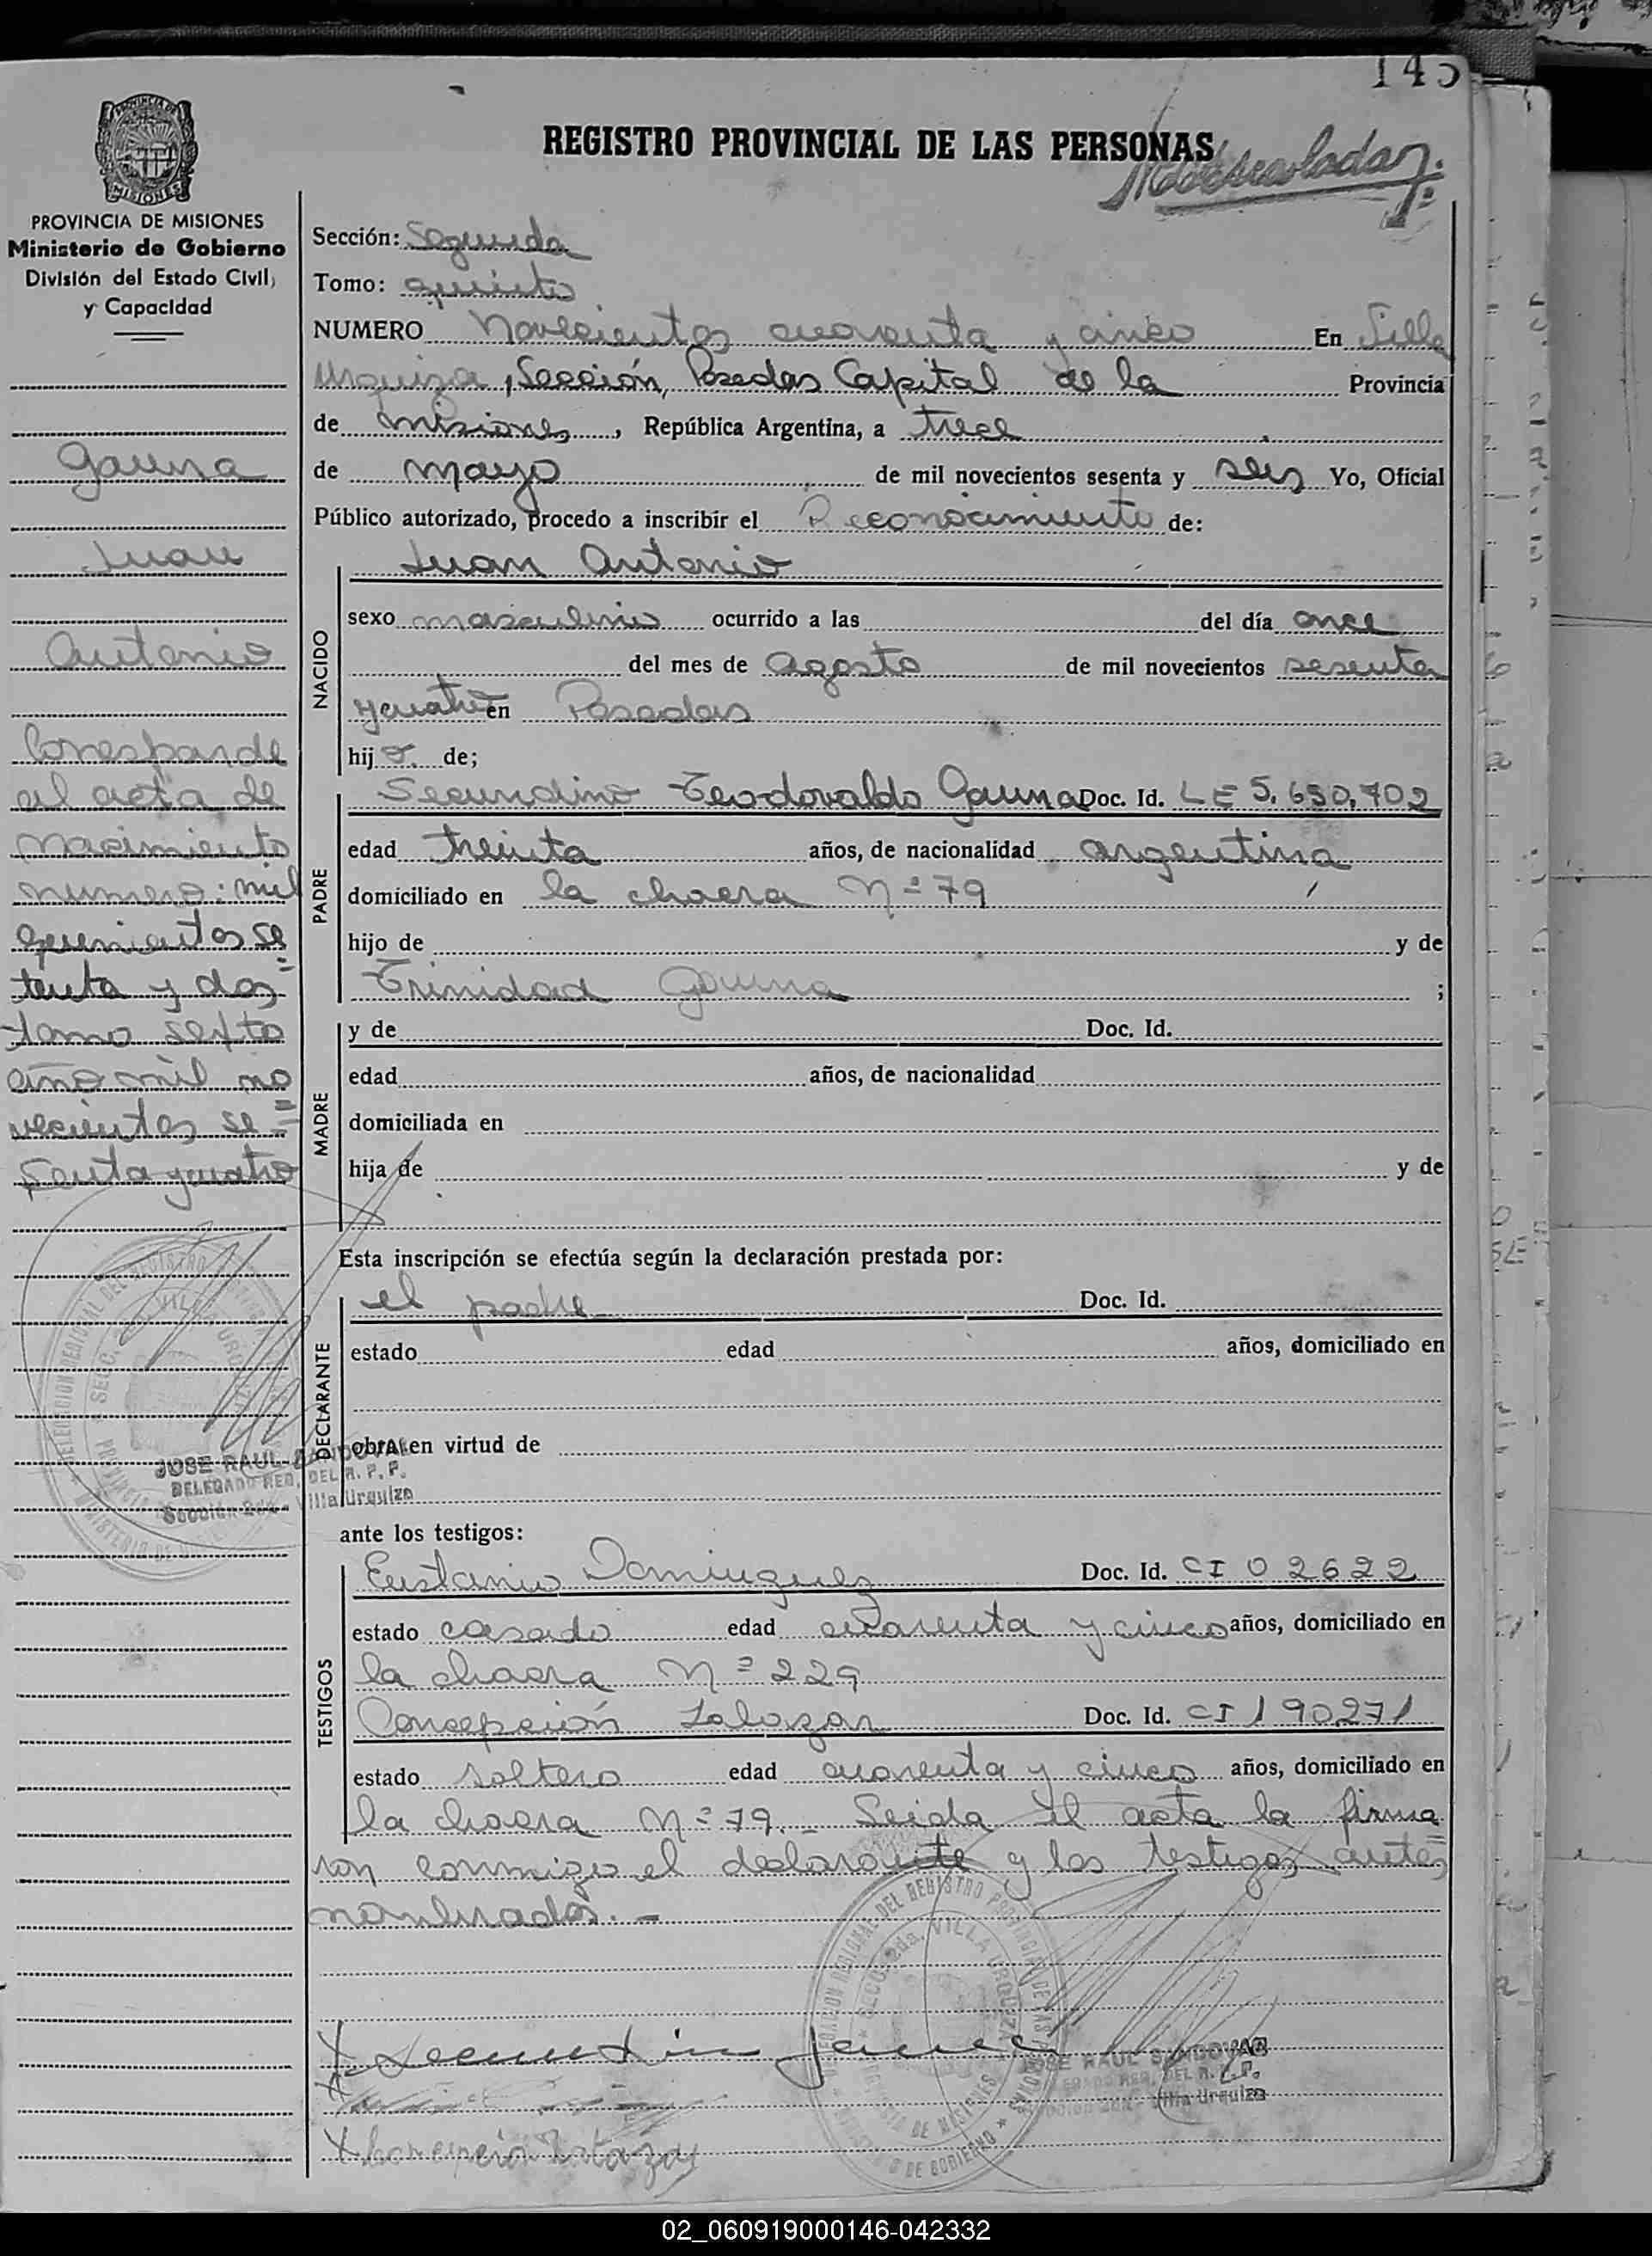 145
REGISTRO PROVINCIAL DE LAS PERSONAS
MISIONES
PROVINCIA DE MISIONES
Ministerio de Gobierno
División del Estado Civil,
y Capacidad
Gauna
Juan
Antonio
Corresponde
al acta de
nacimiento
numero: mil
quinientos se
tenta y dos =
tomo sexto
año mil no
vecientos se =
senta y cuatro
JOSE RAUL SANDOVAL
DELEGADO REG. DEL R. P. P.
Sección 2da - Villa Urquiza
Sección: Segunda
Tomo: quinto
NUMERO Novecientos cuarenta y cinco En Villa
Urquiza, Sección, Posadas Capital de la Provincia
de misiones, República Argentina, a trece
de mayo de mil novecientos sesenta y seis Yo, Oficial
Público autorizado, procedo a inscribir el Reconocimiento de:
NACIDO
Juan Antonio
sexo masculino ocurrido a las del día once
del mes de agosto de mil novecientos sesenta
y cuatro en Posadas
hij o de;
PADRE
Secundino Teodovaldo Gauna Doc. Id. LE 5.650.702
edad treinta años, de nacionalidad argentina
domiciliado en la chacra Nº 79
hijo de y de
Trinidad Gauna ;
MADRE
y de Doc. Id.
edad años, de nacionalidad
domiciliada en
hija de y de
Esta inscripción se efectúa según la declaración prestada por:
DECLARANTE
el padre Doc. Id.
estado edad años, domiciliado en
obra en virtud de
ante los testigos:
TESTIGOS
Eustanio Dominguez Doc. Id. CI 02622
estado casado edad cuarenta y cinco años, domiciliado en
la chacra Nº 229
Concepción Zalazar Doc. Id. CI 190271
estado soltero edad cuarenta y cinco años, domiciliado en
la chacra Nº 79.- Leida el acta la firma
ron conmigo el declarante y los testigos antes
nombrados.-
JOSE RAUL SANDOVAL
Villa Urquiza
02_060919000146-042332